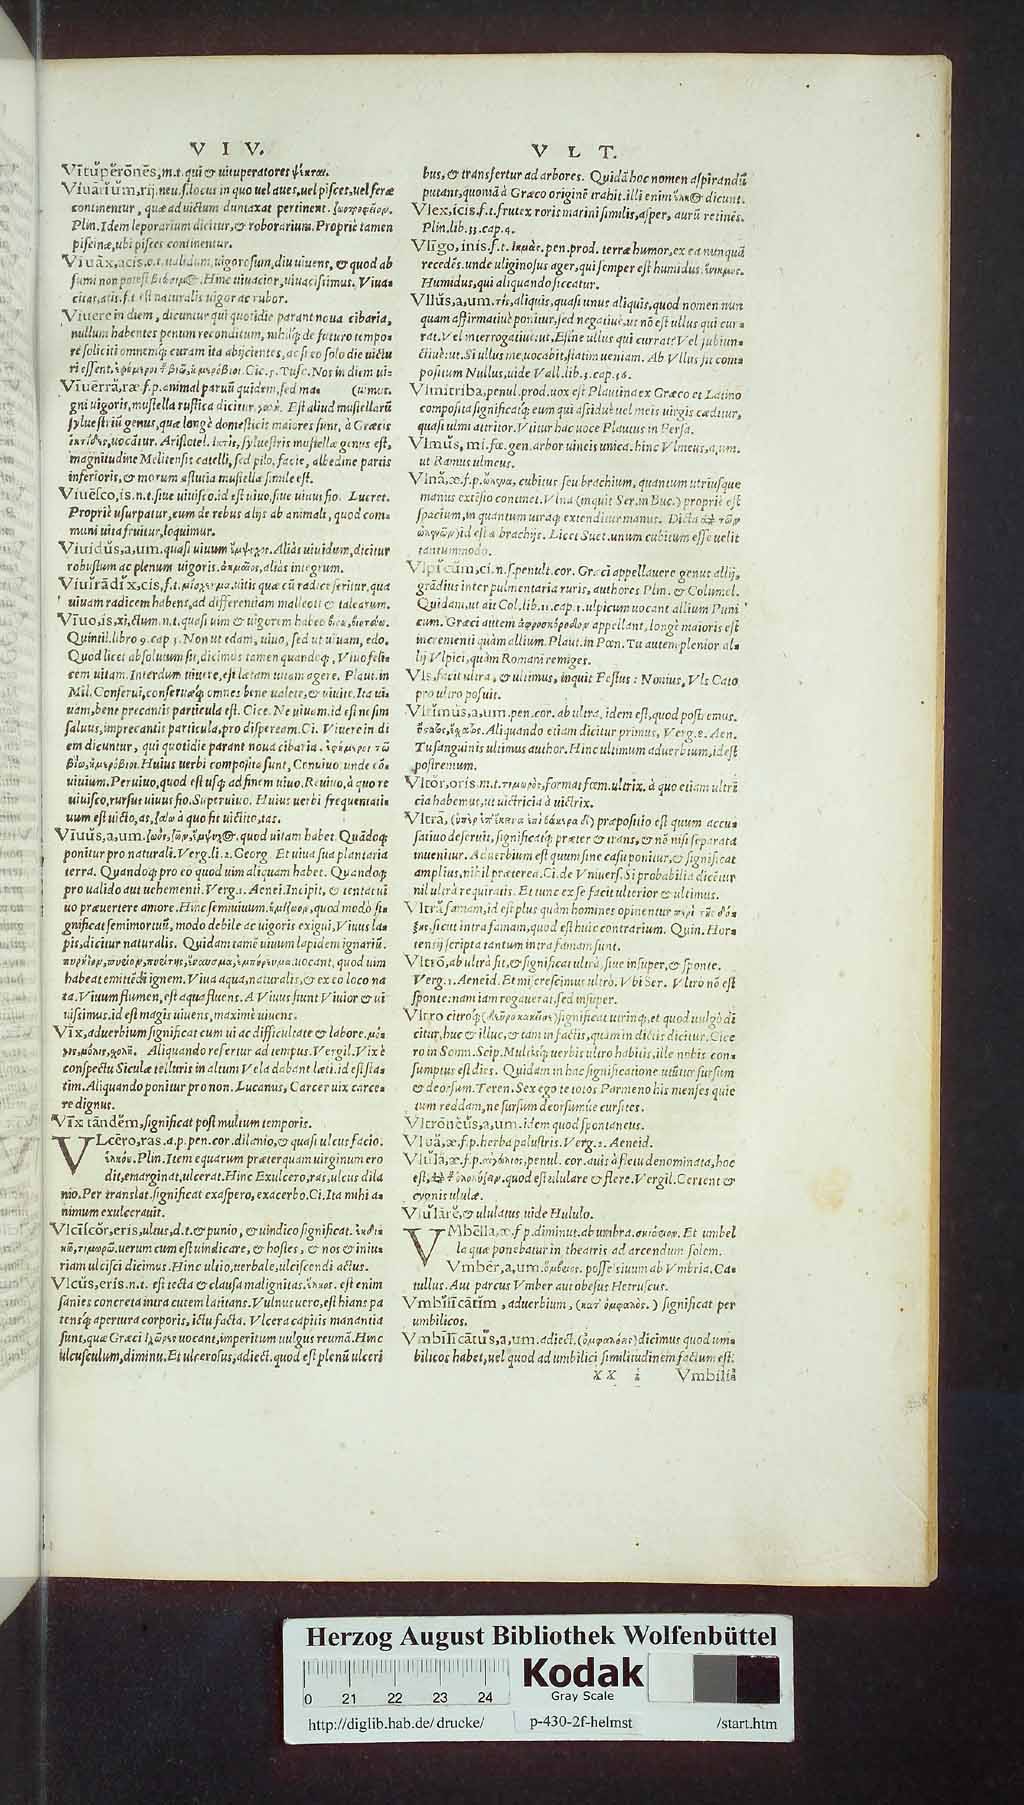 V I V.
Vĭtŭpĕrōnēs, m.t. qui & uituperatores ψέκται.
Viuārĭum, rij. neu. s. locus in quo uel aues, uel pisces, uel feræ
continentur, quæ ad uictum duntaxat pertinent. ζωοτροφεῖον.
Plin. Idem leporarium dicitur, & roborarium. Propriè tamen
piscinæ, ubi pisces continentur.
Viuāx, acis. o.t. ualidum, uigorosum, diu uiuens, & quod ab
sumi non potest Hinc uiuacior, uiuacissimus. Viua=
citas, atis. f.t est naturalis uigor ac rubor.
Viuere in diem, dicuntur qui quotidie parant noua cibaria,
nullum habentes penum reconditum, nihilq; de futuro tempo=
re soliciti omnemq; curam ita abijcientes, ac si eo solo die uictu
ri essent. Cic. 5. Tusc. Nos in diem ui=
Vĭuērră, ræ f.p. animal paruū quidem, sed ma= (uimus.
gni uigoris, mustella rustica dicitur. γαλῆ. Est aliud mustellarū
syluestriū genus, quæ longè domesticis maiores sunt, à Græcis
ἰκτίδες, uocātur. Aristotel. ἴκτις, syluestris mustellæ genus est,
magnitudine Melitensis catelli, sed pilo, facie, albedine partis
inferioris, & morum astutia mustella simile est.
Viuēsco, is. n.t. siue uiuisco. id est uiuo, siue uiuus fio. Lucret.
Propriè usurpatur, cum de rebus alijs ab animali, quod com=
muni uita fruitur, loquimur.
Viuĭdŭs, a, um. quasi uiuum ἔμψυχος. Aliàs uiuidum, dicitur
robustum ac plenum uigoris. ἀκμαῖος, aliàs integrum.
Viuĭrādĭx, cis, f.t. uitis quæ cū radice seritur, qua
uiuam radicem habens, ad differentiam malleoli & talearum.
Vīuo, is, xi, ctum. n.t. quasi uim & uigorem habeo
Quintil. libro 9. cap 3. Non ut edam, uiuo, sed ut uiuam, edo.
Quod licet absolutum sit, dicimus tamen quandoq;, Viuo feli=
cem uitam. Interdum uiuere, est lætam uitam agere. Plaut. in
Mil. Conserui, conseruæq; omnes bene ualete, & uiuite. Ita ui
uam, bene precantis particula est. Cice. Ne uiuam. id est ne sim
saluus, imprecantis particula, pro dispeream. Ci. Viuere in di
em dicuntur, qui quotidie parant noua cibaria. ἐφήμεροι τῶ
βίῳ, ἡμερόβιοι. Huius uerbi composita sunt, Conuiuo: unde cō=
uiuium. Peruiuo, quod est usq; ad finem uiuo. Reuiuo, à quo re
uiuisco, rursus uiuus fio. Superuiuo. Huius uerbi frequentati=
uum est uicto, as, à quo fit uictito, tas.
Vīuŭs, a, um. quod uitam habet. Quādoq;
ponitur pro naturali. Verg. li. 2. Georg. Et uiua sua plantaria
terra. Quandoq; pro eo quod uim aliquam habet. Quandoq;
pro ualido aut uehementi. Verg. 1. Aenei. Incipit, & tentat ui
uo præuertere amore. Hinc semiuiuum. ἡμίζωον, quod modò si=
gnificat semimortuū, modo debile ac uigoris exigui, Viuus la=
pis, dicitur naturalis. Quidam tamē uiuum lapidem ignariū.
uocant, quod uim
habeat emittēdi ignem. Viua aqua, naturalis, & ex eo loco na
ta. Viuum flumen, est aqua fluens. A Viuus fiunt Viuior & ui
uissimus. id est magis uiuens, maximè uiuens.
Vĭx, aduerbium significat cum ui ac difficultate & labore. μό=
γις, μόλις, σχολῇ. Aliquando refertur ad tempus. Vergil. Vix è
conspectu Siculæ telluris in altum Vela dabant læti. id est sta=
tim. Aliquando ponitur pro non. Lucanus, Carcer uix carce=
re dignus.
Vīx tāndĕm, significat post multum temporis.
VLcĕro, ras. a.p. pen. cor. dilanio, & quasi ulcus facio.
ἑλκόω. Plin. Item equarum præterquam uirginum ero
dit, emarginat, ulcerat. Hinc Exulcero, ras, ulcus dila
nio. Per translat. significat exaspero, exacerbo. Ci. Ita mihi a=
nimum exulcerauit.
Vlcīscŏr, eris, ultus, d.t. & punio, & uindico significat. ἐκδικ
κῶ, τιμωρῶ. uerum cum est uindicare, & hostes, & nos & iniu=
riam ulcisci dicimus. Hinc ultio, uerbale, ulciscendi actus.
Vlcŭs, eris. n.t. est tecta & clausa malignitas. ἕλκος. est enim
sanies concreta intra cutem latitans. Vulnus uero, est hians pa
tensq; apertura corporis, ictu facta. Vlcera capitis manantia
sunt, quæ Græci ἰχῶρας uocant, imperitum uulgus reumā. Hinc
ulcusculum, diminu. Et ulcerosus, adiect. quod est plenū ulceri
V L T.
bus, & transfertur ad arbores. Quidā hoc nomen aspirandū
putant, quoniā à Græco originē trahit. illi enim ἕλκος dicunt.
Vlex, icis, f.t. frutex roris marini similis, asper, aurū retinēs.
Plin. lib. 33. cap. 4.
Vlīgo, inis. f.t. ἰκμὰς. pen. prod. terræ humor, ex ea nunquā
recedēs. unde uliginosus ager, qui semper est humidus.
Humidus, qui aliquando siccatur.
Vllŭs, a, um. τὶς, aliquis, quasi unus aliquis, quod nomen nun
quam affirmatiuè ponitur, sed negatiuè, ut nō est ullus qui cur=
rat. Vel interrogatiuè: ut, Estne ullus qui currat? Vel subiun=
ctiuè: ut. Si ullus me, uocabit, statim ueniam. Ab Vllus fit com=
positum Nullus, uide Vall. lib. 3. cap. 56.
Vlmitriba, penul. prod. uox est Plautina ex Græco et Latino
composita significatq; eum qui assiduè ulmeis uirgis cæditur,
quasi ulmi attritor. Vtitur hac uoce Plautus in Persa.
Vlmŭs, mi. fœ. gen. arbor uineis unica. hinc Vlmeus, a, um.
ut Ramus ulmeus.
Vlnă, æ. f.p. ὠλένη, cubitus seu brachium, quantum utriusque
manus extēsio continet. Vlna (inquit Ser. in Buc.) propriè est
spacium, in quantum utraq; extenditur manus. Dicta τῶν
ὠλενῶν) id est à brachijs. Licet Suet. unum cubitum esse uelit
tantummodo.
Vlpĭcŭm, ci. n. s. penult. cor. Græci appellauere genus allij,
grādius inter pulmentaria ruris, authores Plin. & Columel.
Quidam, ut ait Col. lib. 11. cap. 3. ulpicum uocant allium Puni
cum. Græci autem ἀφροσκόροδον appellant, longè maioris est
incrementi quàm allium. Plaut. in Pœn. Tu autem plenior al=
lij Vlpici, quàm Romani remiges.
Vls, facit ultra, & ultimus, inquit Festus: Nonius, Vls Cato
pro ultro posuit.
Vltĭmŭs, a, um. pen. cor. ab ultra. idem est, quod postremus.
ὕστατος, ἔσχατος. Aliquando etiam dicitur primus, Verg. 2. Aen.
Tu sanguinis ultimus author. Hinc ultimum aduerbium, id est
postremum.
Vltŏr, oris. m.t. τιμωρὸς, format fœm. ultrix. à quo etiam ultri
cia habemus, ut uictricia à uictrix.
Vltrā, præpositio est quum accu=
satiuo deseruit, significatq; præter & trans, & nō nisi separata
inuenitur. Aduerbium est quum sine casu ponitur, & significat
amplius, nihil præterea. Ci. de Vniuers. Si probabilia dicētur
nil ultrà requiratis. Et tunc ex se facit ulterior & ultimus.
Vltrā famam, id est plus quàm homines opinentur περὶ τῆς δό=
ξης. sicut intra famam, quod est huic contrarium. Quin. Hor=
tensij scripta tantum intra famam sunt.
Vltrō, ab ultrà fit, & significat ultrà, siue insuper, & sponte.
Verg. 2. Aeneid. Et mi crescimus ultrò. Vbi Ser. Vltro nō est
sponte: nam iam rogauerat, sed insuper.
Vltro citroq; significat utrinq;. et quod uulgò di
citur, huc & illuc, & tam in factis, quàm in dictis dicitur. Cice
ro in Somn. Scip. Multisq; uerbis ultro habitis, ille nobis con=
sumptus est dies. Quidam in hac significatione utūtur sursum
& deorsum. Teren. Sex ego te totos Parmeno hos menses quie
tum reddam, ne sursum deorsumúe cursites.
Vltrōnĕŭs, a, um. idem quod spontaneus.
Vluă, æ. f.p. herba palustris. Verg. 2. Aeneid.
Vlŭlă, æ. f.p. penul. cor. auis à fletu denominata, hoc
est, quod est ululare & flere. Vergil. Certent &
cygnis ululæ.
Vlŭlārĕ, & ululatus uide Hululo.
VMbēllă, æ. f.p. diminut. ab umbra. σκιάδιον. Et umbel
la quæ ponebatur in theatris ad arcendum solem.
Vmbĕr, a, um. ὄμβριος. possessiuum ab Vmbria. Ca=
tullus. Aut parcus Vmber aut obesus Hetruscus.
Vmbĭlĭcātĭm, aduerbium, (κατ' ὀμφαλὸς.) significat per
umbilicos.
Vmbĭlĭcātŭs, a, um. adiect. dicimus quod um=
bilicos habet, uel quod ad umbilici similitudinem factum est.
XX 2 Vmbiliā
Herzog August Bibliothek Wolfenbüttel
Kodak
Gray Scale
0 21 22 23 24
http://diglib.hab.de/drucke/ p-430-2f-helmst /start.htm